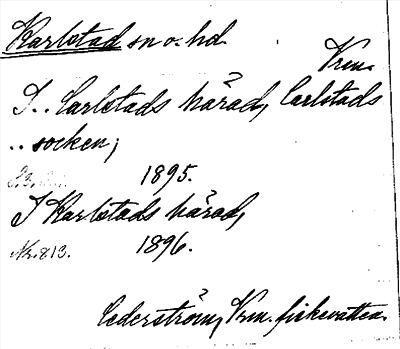 Karlstad sn o. hd.
Vrm.
I.. Carlstads härad, Carlstads
.. socken;
1895.
I Karlstads härad,
Nr. 813. 1896.
Cederström, Vrm. fiskevatten.